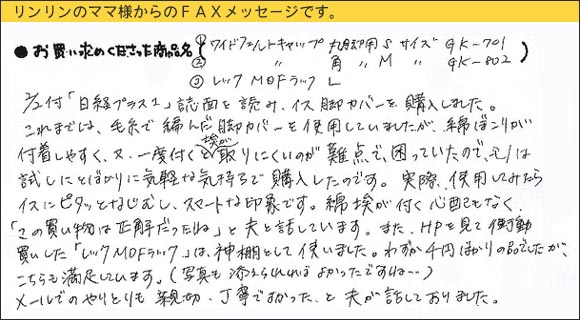 リンリンのママ様からのＦＡＸメッセージです。
●お買い求めくださった商品名 ① ワイドフェルトキャップ 丸脚用 S サイズ GK-701
② 〃 角 〃 M 〃 GK-802
③ レック MOFラック L
3/2付「日経プラス1」誌面を読み、イス脚カバーを購入しました。
これまでは、毛糸で編んだ脚カバーを使用していましたが、綿ぼこりが
付着しやすく、又、一度付くと埃が取りにくいのが難点で、困っていたので、心は
試しにとばかりに気軽な気持ちで購入したのです。実際、使用してみたら
イスにピタッとなじむし、スマートな印象です。綿埃が付く心配もなく、
「この買い物は正解だったね」と夫と話しています。また、HPを見て衝動
買いした「レックMOFラック」は、神棚として使いました。わずか千円ばかりの品でしたが、
こちらも満足しています。(写真も添えられればよかったですね…)
メールでのやりとりも親切、丁寧でよかった、と夫が話しておりました。